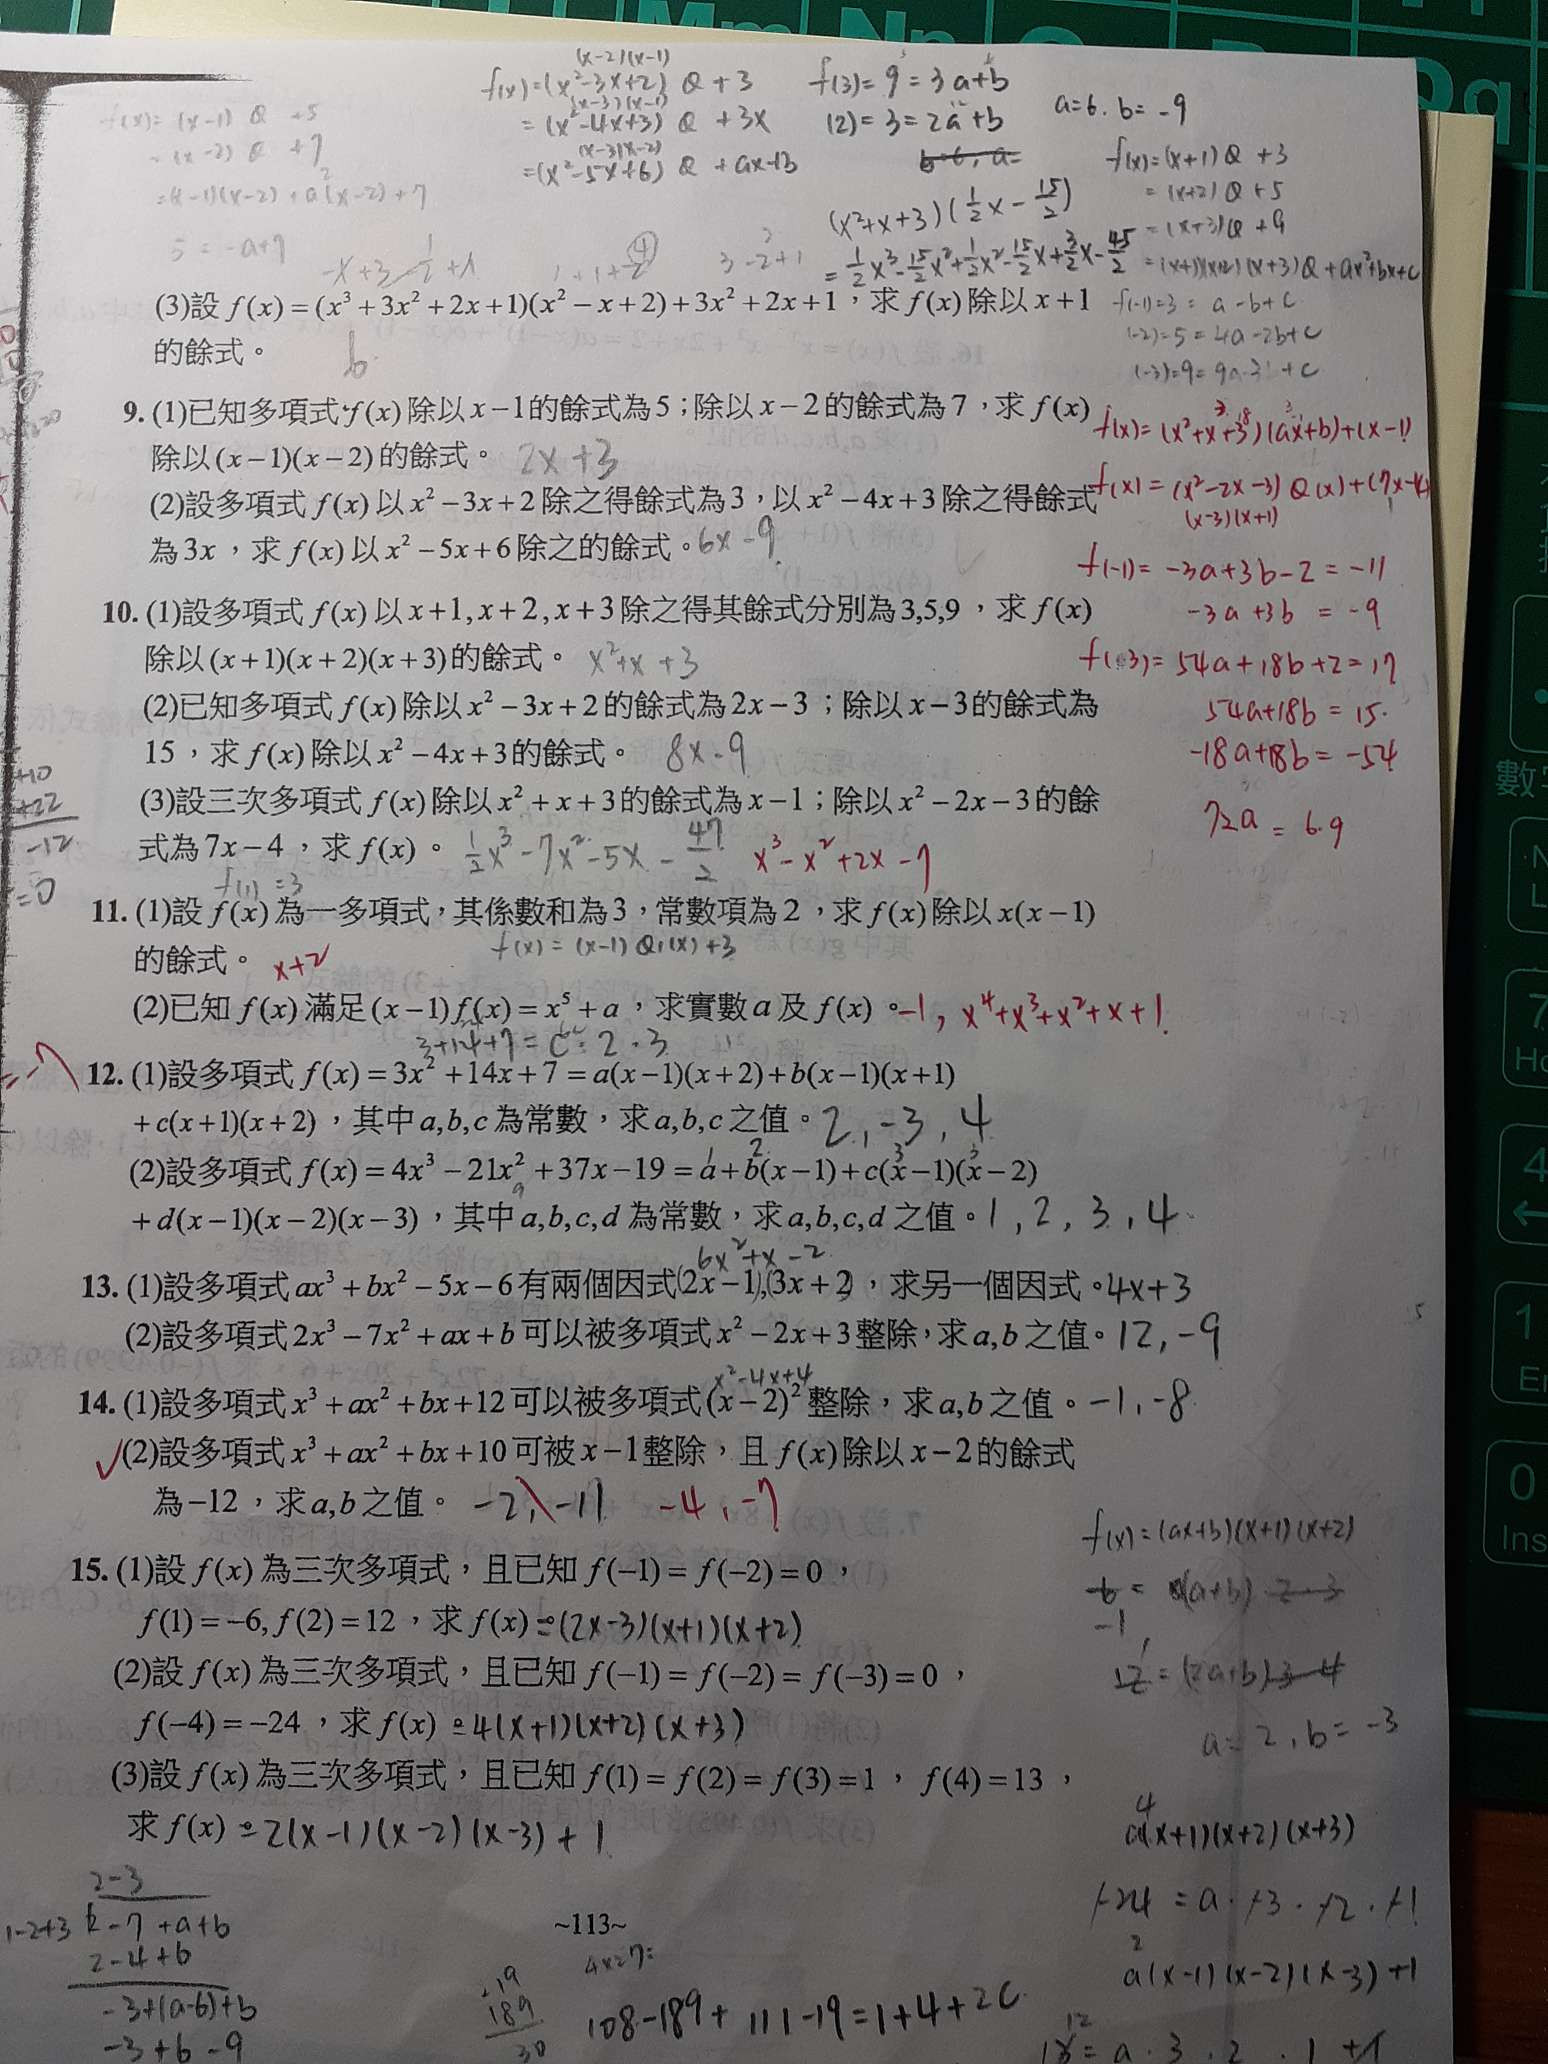 (x-2)(x-1)
f(x)=(x²-3x+2) Q +3
(x-3)(x-1)
=(x²-4x+3) Q +3x
(x-3)(x-2)
=(x²-5x+6) Q +ax+b
f(3)=9=3a+b
(2)=3=2a+b
a=6. b=-9
f(x)=(x-1) Q +5
=(x-2) Q +7
=(x-1)(x-2)+a(x-2)+7
5=-a+7
f(x)=(x+1)Q +3
=(x+2)Q +5
=(x+3)Q +9
=(x+1)(x+2)(x+3)Q+ax²+bx+c
f(-1)=3= a-b+c
(-2)=5=4a-2b+c
(x²+x+3)(½x-15/2)
=½x³-15/2x²+½x²-15/2x+3/2x-45/2
(3)設 f(x)=(x³+3x²+2x+1)(x²-x+2)+3x²+2x+1，求 f(x) 除以 x+1
的餘式。 6
9. (1)已知多項式 f(x) 除以 x-1的餘式為5；除以 x-2的餘式為7，求 f(x)
除以 (x-1)(x-2) 的餘式。 2x+3
(2)設多項式 f(x) 以 x²-3x+2 除之得餘式為3，以 x²-4x+3 除之得餘式
為3x，求 f(x) 以 x²-5x+6 除之的餘式。6x-9
f(x)=(x²+x+3)(ax+b)+(x-1)
f(x)=(x²-2x-3)Q(x)+(7x-4)
(x-3)(x+1)
f(-1)=-3a+3b-2=-11
-3a+3b=-9
f(3)=54a+18b+2=17
54a+18b=15.
-18a+18b=-54
72a=69
10. (1)設多項式 f(x) 以 x+1,x+2,x+3除之得其餘式分別為3,5,9，求 f(x)
除以 (x+1)(x+2)(x+3) 的餘式。 x²+x+3
(2)已知多項式 f(x) 除以 x²-3x+2 的餘式為 2x-3；除以 x-3的餘式為
15，求 f(x) 除以 x²-4x+3 的餘式。 8x-9
(3)設三次多項式 f(x) 除以 x²+x+3 的餘式為 x-1；除以 x²-2x-3 的餘
式為 7x-4，求 f(x)。 ½x³-7x²-5x-47/2 x³-x²+2x-7
f(1)=3
11. (1)設 f(x) 為一多項式，其係數和為3，常數項為2，求 f(x) 除以 x(x-1)
的餘式。 x+2 f(x)=(x-1)Q₁(x)+3
(2)已知 f(x) 滿足 (x-1)f(x)=x⁵+a，求實數 a 及 f(x)。-1, x⁴+x³+x²+x+1
3+14+7=c·2·3
12. (1)設多項式 f(x)=3x²+14x+7=a(x-1)(x+2)+b(x-1)(x+1)
+c(x+1)(x+2)，其中 a,b,c 為常數，求 a,b,c 之值。2,-3,4
(2)設多項式 f(x)=4x³-21x²+37x-19=a+b(x-1)+c(x-1)(x-2)
+d(x-1)(x-2)(x-3)，其中 a,b,c,d 為常數，求 a,b,c,d 之值。1,2,3,4
6x²+x-2
13. (1)設多項式 ax³+bx²-5x-6 有兩個因式(2x-1),(3x+2)，求另一個因式。4x+3
(2)設多項式 2x³-7x²+ax+b 可以被多項式 x²-2x+3 整除，求 a,b 之值。12,-9
x²-4x+4
14. (1)設多項式 x³+ax²+bx+12 可以被多項式 (x-2)² 整除，求 a,b 之值。-1,-8
(2)設多項式 x³+ax²+bx+10 可被 x-1 整除，且 f(x) 除以 x-2 的餘式
為-12，求 a,b 之值。 -2,-11 -4,-7
15. (1)設 f(x) 為三次多項式，且已知 f(-1)=f(-2)=0，
f(1)=-6, f(2)=12，求 f(x)。=(2x-3)(x+1)(x+2)
(2)設 f(x) 為三次多項式，且已知 f(-1)=f(-2)=f(-3)=0，
f(-4)=-24，求 f(x)。4(x+1)(x+2)(x+3)
(3)設 f(x) 為三次多項式，且已知 f(1)=f(2)=f(3)=1，f(4)=13，
求 f(x)。2(x-1)(x-2)(x-3)+1
f(x)=(ax+b)(x+1)(x+2)
a=2, b=-3
a(x+1)(x+2)(x+3)
-24=a·-3·-2·-1
a(x-1)(x-2)(x-3)+1
2-3
1-2+3 2-7+a+b
2-4+6
-3+(a-6)+b
-3+6-9
~113~
4×27=
189
108-189+111-19=1+4+2c